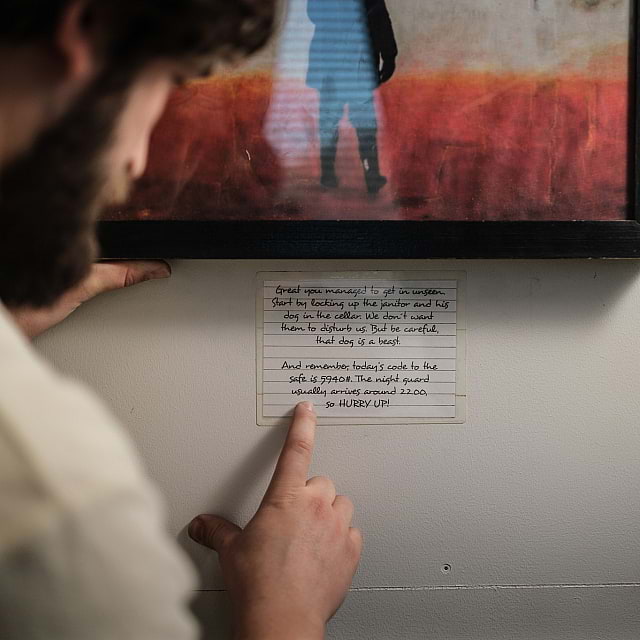 Great you managed to get in unseen.
Start by locking up the janitor and his
dog in the cellar. We don't want
them to disturb us. But be careful,
that dog is a beast.
And remember, today's code to the
safe is 5940#. The night guard
usually arrives around 22.00,
so HURRY UP!